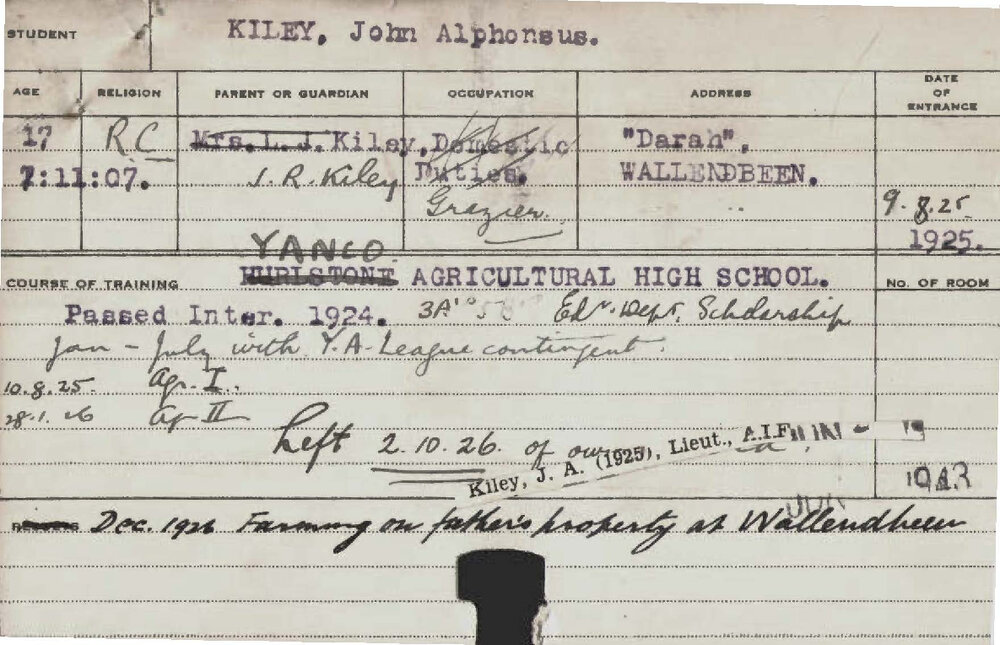 STUDENT KILEY, John Alphonsus.
AGE RELIGION PARENT OR GUARDIAN OCCUPATION ADDRESS DATE OF ENTRANCE
17 R.C Mrs. L. J. Kiley, Domestic "Darah",
7:11:07. J. R. Kiley Duties. WALLENDBEEN.
Grazier. 9.8.25
1925.
YANCO
COURSE OF TRAINING HURLSTONE AGRICULTURAL HIGH SCHOOL. NO. OF ROOM
Passed Inter. 1924. 3A Edn. Dept. Scholarship
Jan - July with Y.A. League contingent.
10.8.25. Agr. I.
28.1.26 Ag II
Left 2.10.26. of own
Kiley, J. A. (1925), Lieut., A.I.F.
1943
Dec. 1926 Farming on father's property at Wallendbeen